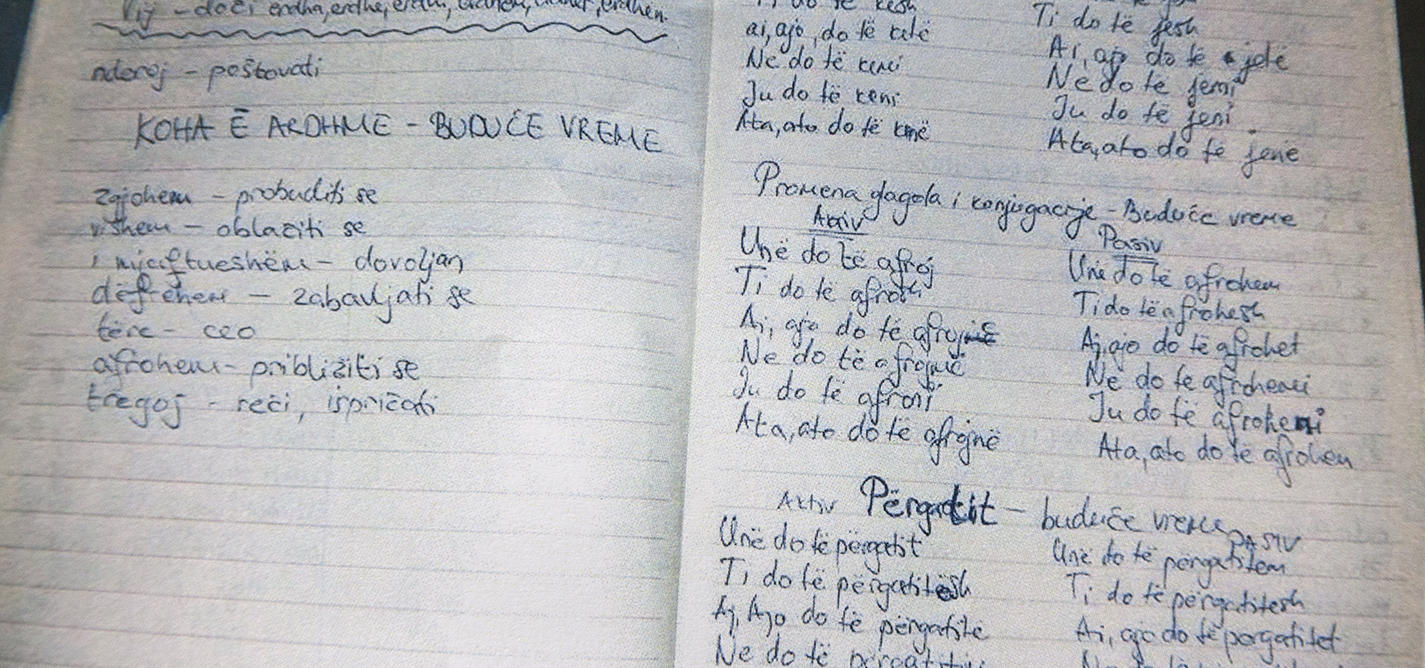 Vij - doći erdha, erdhe, erdhi, erdhëm, erdhët, erdhën.
nderoj - poštovati
KOHA E ARDHME - BUDUĆE VREME
zgjohem - probuditi se
vishem - oblaciti se
i mjaftueshëm - dovoljan
dëfrehem - zabavljati se
tëre - ceo
afrohem - približiti se
tregoj - reći, ispričati
Ti do të kesh
ai, ajo, do të ketë
Ne do të kemi
Ju do të keni
Ata, ato do të kenë
Ti do të jesh
Ai, ajo do të jetë
Ne do të jemi
Ju do të jeni
Ata, ato do të jenë
Promena glagola i konjugacije - Buduće vreme
Aktiv
Unë do të afroj
Ti do të afrosh
Ai, ajo do të afrojë
Ne do të afrojmë
Ju do të afroni
Ata, ato do të afrojnë
Pasiv
Unë do të afrohem
Ti do të afrohesh
Aj, ajo do të afrohet
Ne do të afrohemi
Ju do të afroheni
Ata, ato do të afrohen
Aktiv Përgatit - buduće vreme PASIV
Unë do të përgatit
Ti do të përgatitësh
Aj, Ajo do të përgatitë
Ne do të
Unë do të përgatitem
Ti do të përgatitesh
Ai, ajo do të pərgatitet